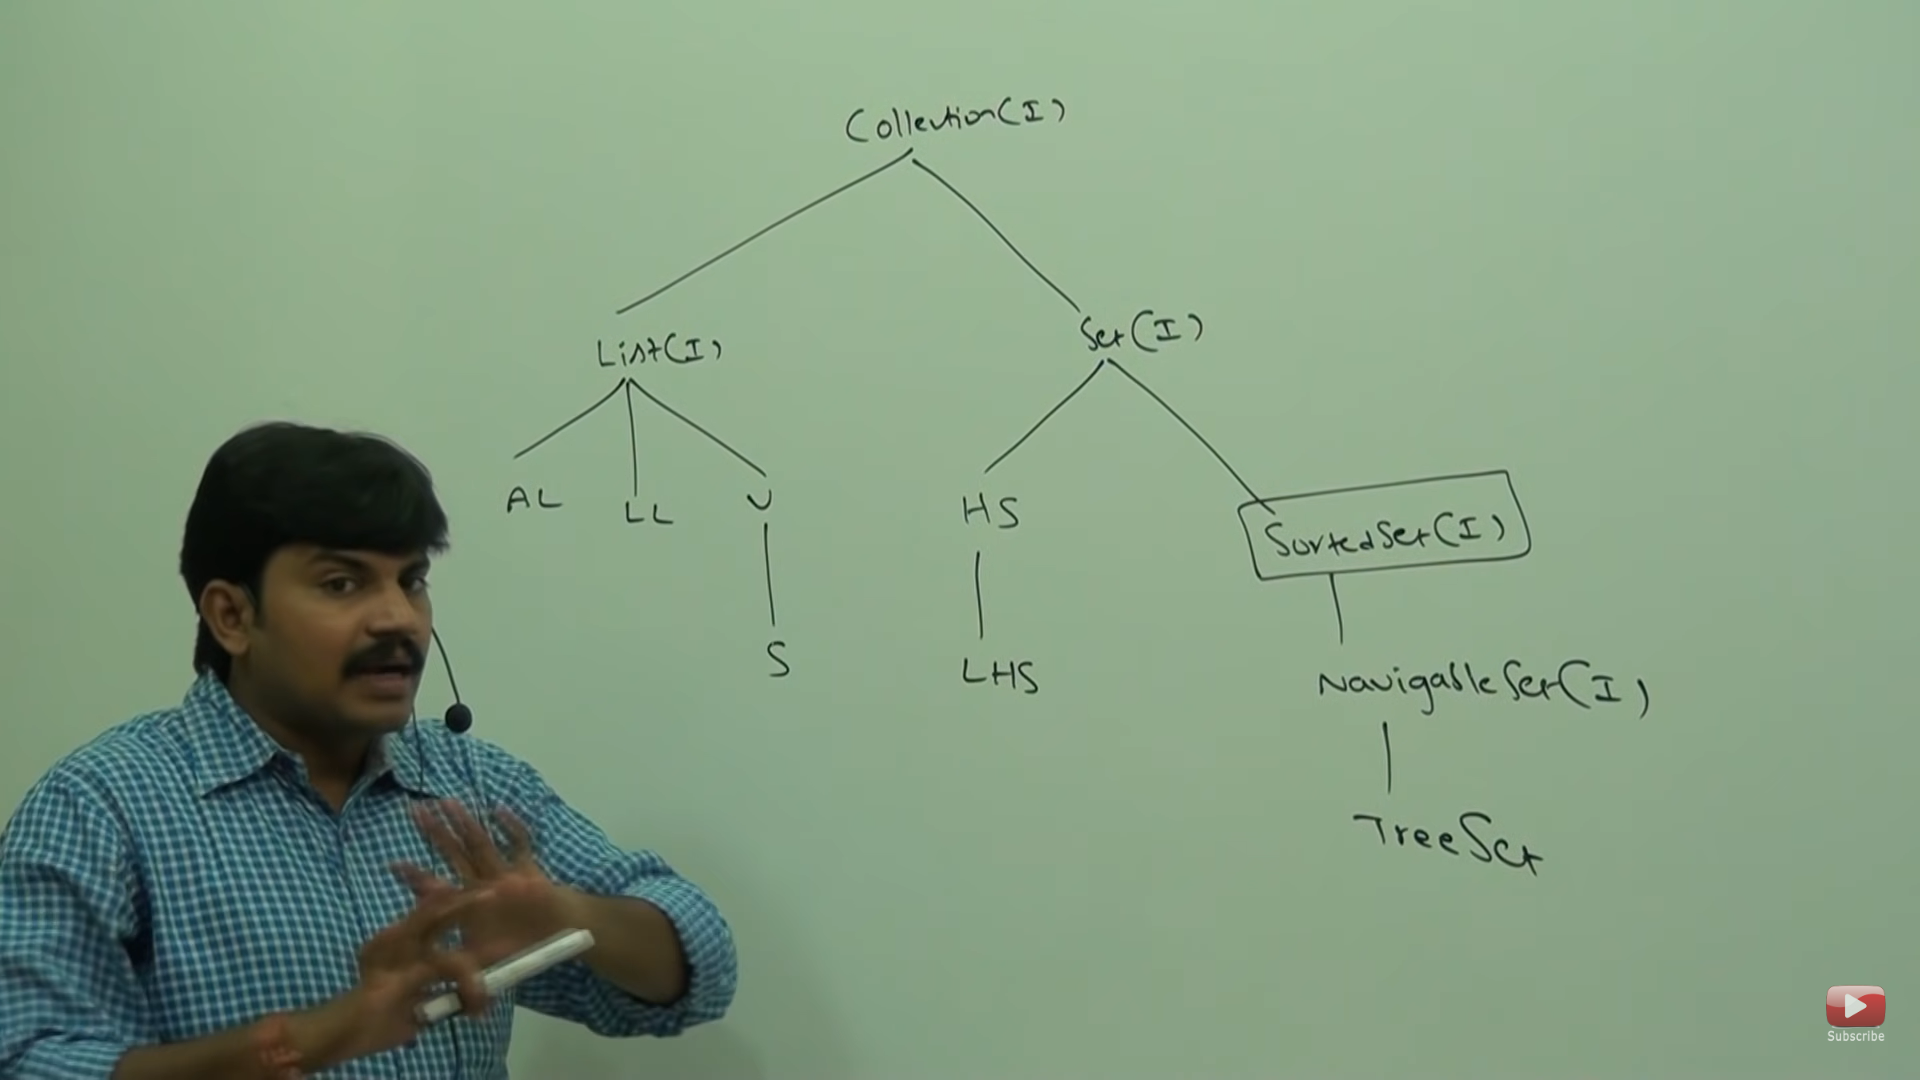 Collection(I)
List(I)
Set(I)
AL
LL
V
HS
SortedSet(I)
S
LHS
NavigableSet(I)
TreeSet
Subscribe